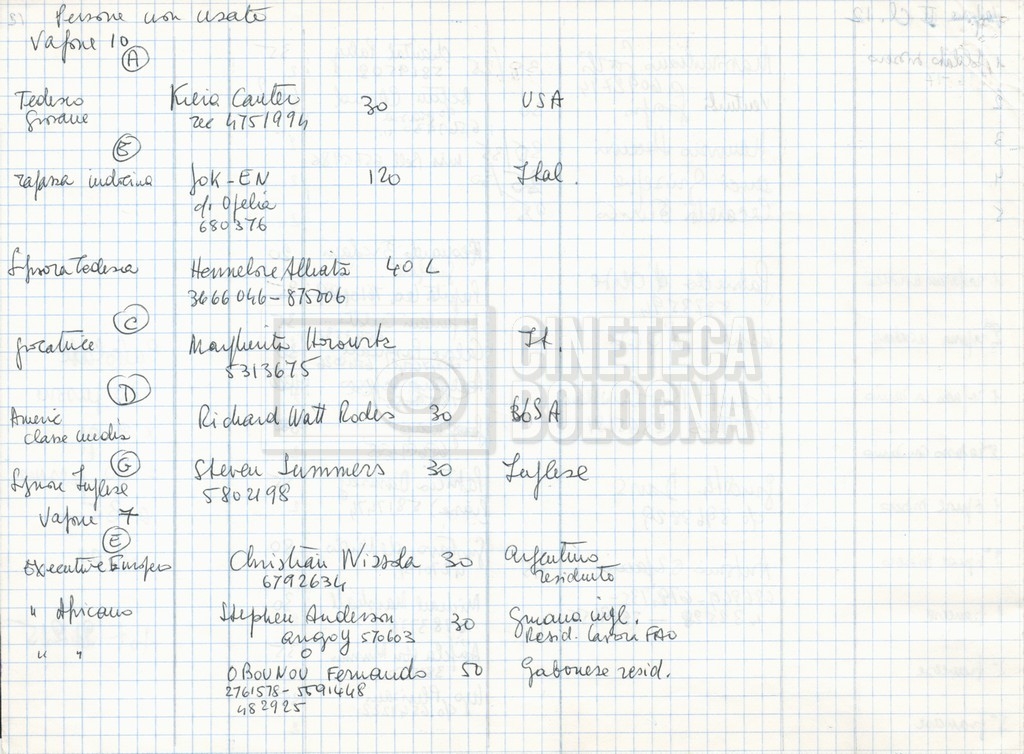 Persone non usate
Vagone 10
A
Tedesco Kieia Canter 30 USA
giovane 4751994
B
ragazza indocina JOK-EN 120 Ital.
di Ofelia
680376
Signora Tedesca Hennelore Alliata 40 L
3666046-875006
C
giocatrice Margherita Horowitz It.
5313675
D
Americ Richard Watt Rodes 30 USA
classe media
G
Signore Inglese Steven Summers 30 Inglese
5802198
Vagone 7
E
executive Europeo Christian Nissola 30 argentino
6792634 residente
" Africano Stephen Anderson 30 Guiana ingl.
angoy 570603 Resid. lavora FAO
" "
OBOUNOU Fernando 50 Gabonese resid.
2761578-5591448
482925
CINETECA
BOLOGNA